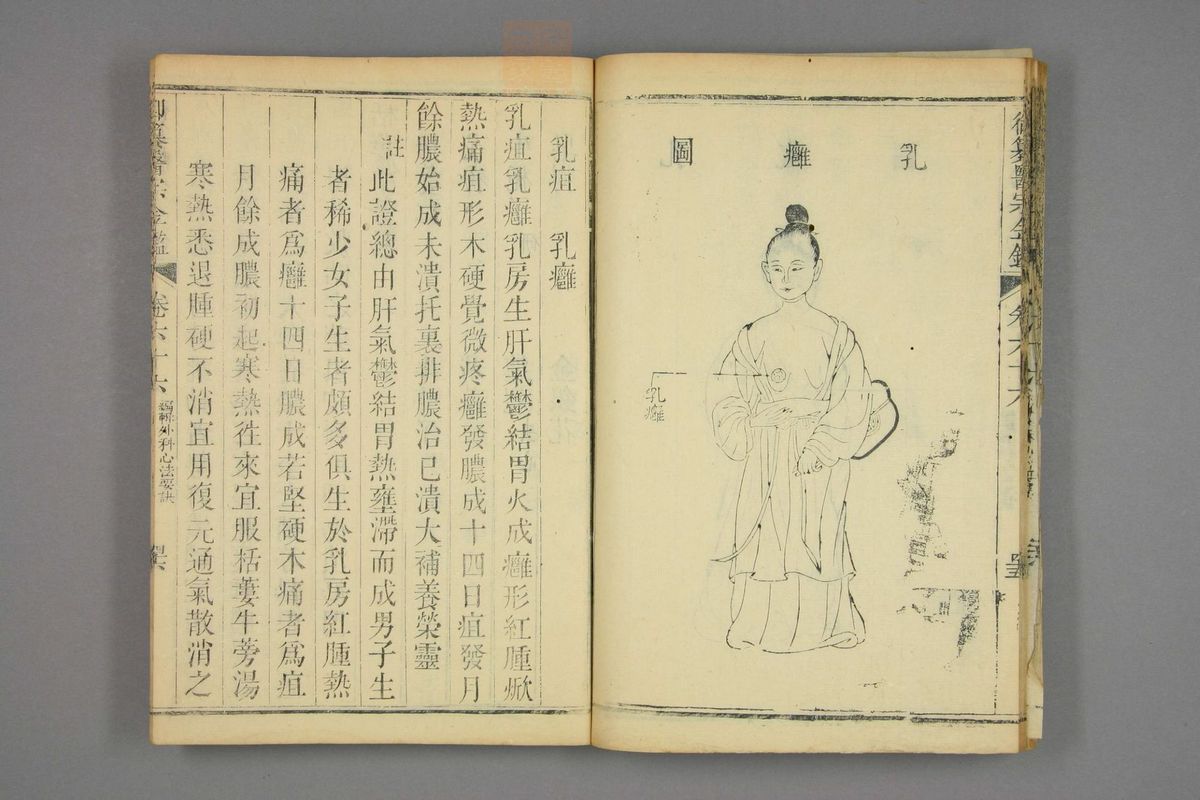 乳癰圖
乳癰
御纂醫宗金鑑
卷六十六
乳疽 乳癰
乳疽乳癰乳房生肝氣鬱結胃火成癰形紅腫焮
熱痛疽形木硬覺微疼癰發膿成十四日疽發月
餘膿始成未潰托裏排膿治已潰大補養榮靈
註此證總由肝氣鬱結胃熱壅滯而成男子生
者稀少女子生者頗多俱生於乳房紅腫熱
痛者爲癰十四日膿成若堅硬木痛者爲疽
月餘成膿初起寒熱往來宜服栝蔞牛蒡湯
寒熱悉退腫硬不消宜用復元通氣散消之
御纂醫宗金鑑
卷六十六
編輯外科心法要訣